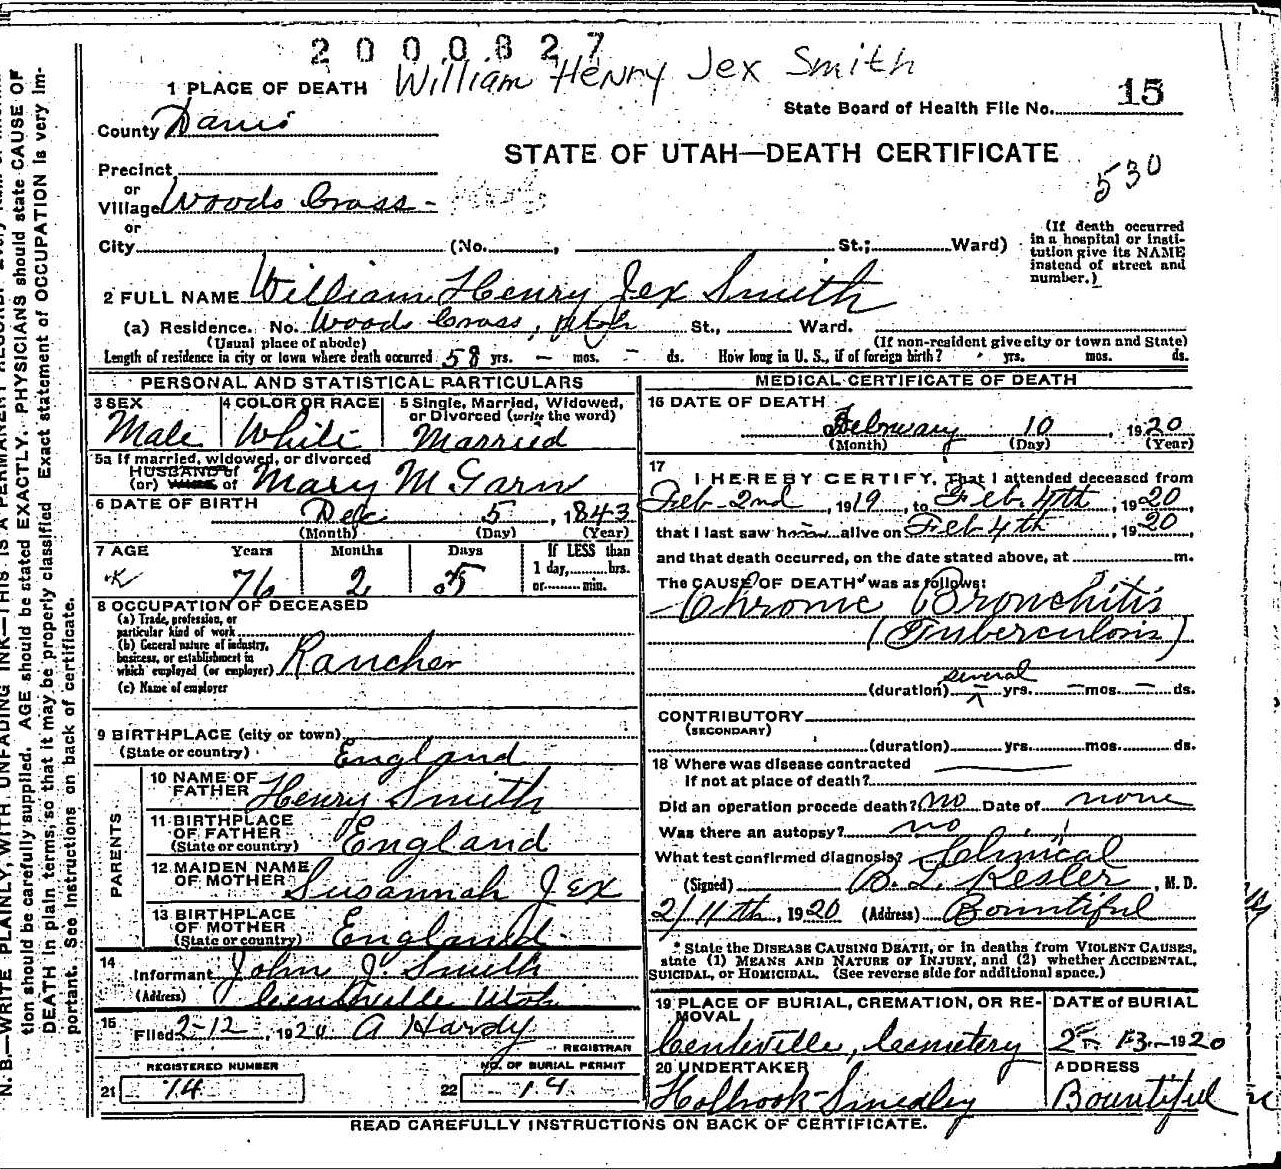 2000827
William Henry Jex Smith
1 PLACE OF DEATH
State Board of Health File No. 15
County Davis
STATE OF UTAH—DEATH CERTIFICATE
530
Precinct
or
Village Woods Cross -
or
City (No. , St.; Ward)
(If death occurred
in a hospital or insti-
tution give its NAME
instead of street and
number.)
2 FULL NAME William Henry Jex Smith
(a) Residence. No. Woods Cross, Utah St., Ward.
(Usual place of abode) (If non-resident give city or town and State)
Length of residence in city or town where death occurred 58 yrs. — mos. — ds. How long in U. S., if of foreign birth? yrs. mos. ds.
PERSONAL AND STATISTICAL PARTICULARS
3 SEX 4 COLOR OR RACE 5 Single, Married, Widowed,
or Divorced (write the word)
Male White Married
5a If married, widowed, or divorced
HUSBAND of
(or) WIFE of Mary M Garn
6 DATE OF BIRTH Dec 5, 1843
(Month) (Day) (Year)
7 AGE Years Months Days If LESS than
1 day, hrs.
or min.
76 2 5
8 OCCUPATION OF DECEASED
(a) Trade, profession, or
particular kind of work
(b) General nature of industry,
business, or establishment in
which employed (or employer) Rancher
(c) Name of employer
9 BIRTHPLACE (city or town)
(State or country) England
PARENTS
10 NAME OF
FATHER Henry Smith
11 BIRTHPLACE
OF FATHER
(State or country) England
12 MAIDEN NAME
OF MOTHER Susannah Jex
13 BIRTHPLACE
OF MOTHER
(State or country) England
14
Informant John J. Smith
(Address) Centerville Utah
15
Filed 2-12, 1920 A Hardy
REGISTRAR
REGISTERED NUMBER NO. OF BURIAL PERMIT
21 14 22 14
MEDICAL CERTIFICATE OF DEATH
16 DATE OF DEATH
February 10, 1920
(Month) (Day) (Year)
17
I HEREBY CERTIFY, That I attended deceased from
Feb - 2nd, 1919, to Feb. 4th, 1920
that I last saw him alive on Feb 4th, 1920
and that death occurred, on the date stated above, at m.
The CAUSE OF DEATH* was as follows:
Chronic Bronchitis
(Tuberculosis)
several
(duration) — yrs. — mos. — ds.
CONTRIBUTORY
(SECONDARY)
(duration) yrs. mos. ds.
18 Where was disease contracted
If not at place of death?
Did an operation precede death? no Date of none
Was there an autopsy? no
What test confirmed diagnosis? Clinical
(Signed) B. L. Kesler, M. D.
2/11th, 1920 (Address) Bountiful
* State the DISEASE CAUSING DEATH, or in deaths from VIOLENT CAUSES,
state (1) MEANS AND NATURE OF INJURY, and (2) whether ACCIDENTAL,
SUICIDAL, or HOMICIDAL. (See reverse side for additional space.)
19 PLACE OF BURIAL, CREMATION, OR RE-
MOVAL
DATE of BURIAL
Centerville, Cemetery 2 - 13 - 1920
20 UNDERTAKER ADDRESS
Holbrook-Smedley Bountiful
READ CAREFULLY INSTRUCTIONS ON BACK OF CERTIFICATE.
N. B.—WRITE PLAINLY, WITH UNFADING INK—THIS IS A PERMANENT RECORD.
tion should be carefully supplied. AGE should be stated EXACTLY. PHYSICIANS should state CAUSE OF
DEATH in plain terms, so that it may be properly classified Exact statement of OCCUPATION is very im-
portant. See Instructions on back of certificate.